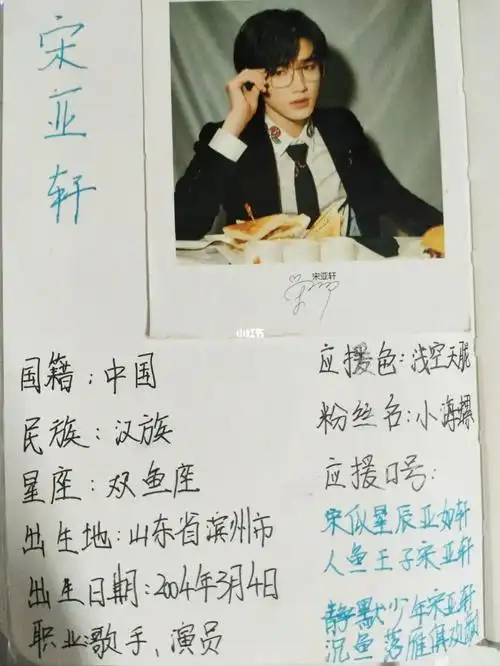 宋亚轩
宋亚轩
小红书
国籍：中国
民族：汉族
星座：双鱼座
出生地：山东省滨州市
出生日期：2004年3月4日
职业歌手、演员
应援色：浅空天靛
粉丝名：小海螺
应援口号：
宋似星辰亚如轩
人鱼王子宋亚轩
静默少年宋亚轩
沉鱼落雁俱欢献